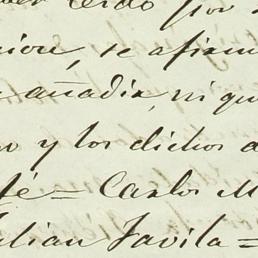 por
se afirm
añadir, ni qu
y los dichos a
fé = Carlos M
ulian Favila =